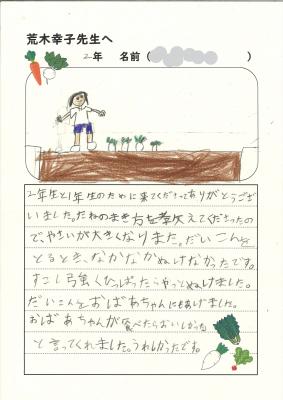 荒木幸子先生へ
2年 名前( )
2年生と1年生のために来てくださってありがとうござい
ました。たねのまき方を教えてくださったの
で、やさいが大きくなりました。だいこんを
とるとき、なかなかぬけなかったです。
すこし強くひっぱったらやっとぬけました。
だいこんをおばあちゃんにもあげました。
おばあちゃんが食べたらおいしかった
と言ってくれました。うれしかったです。